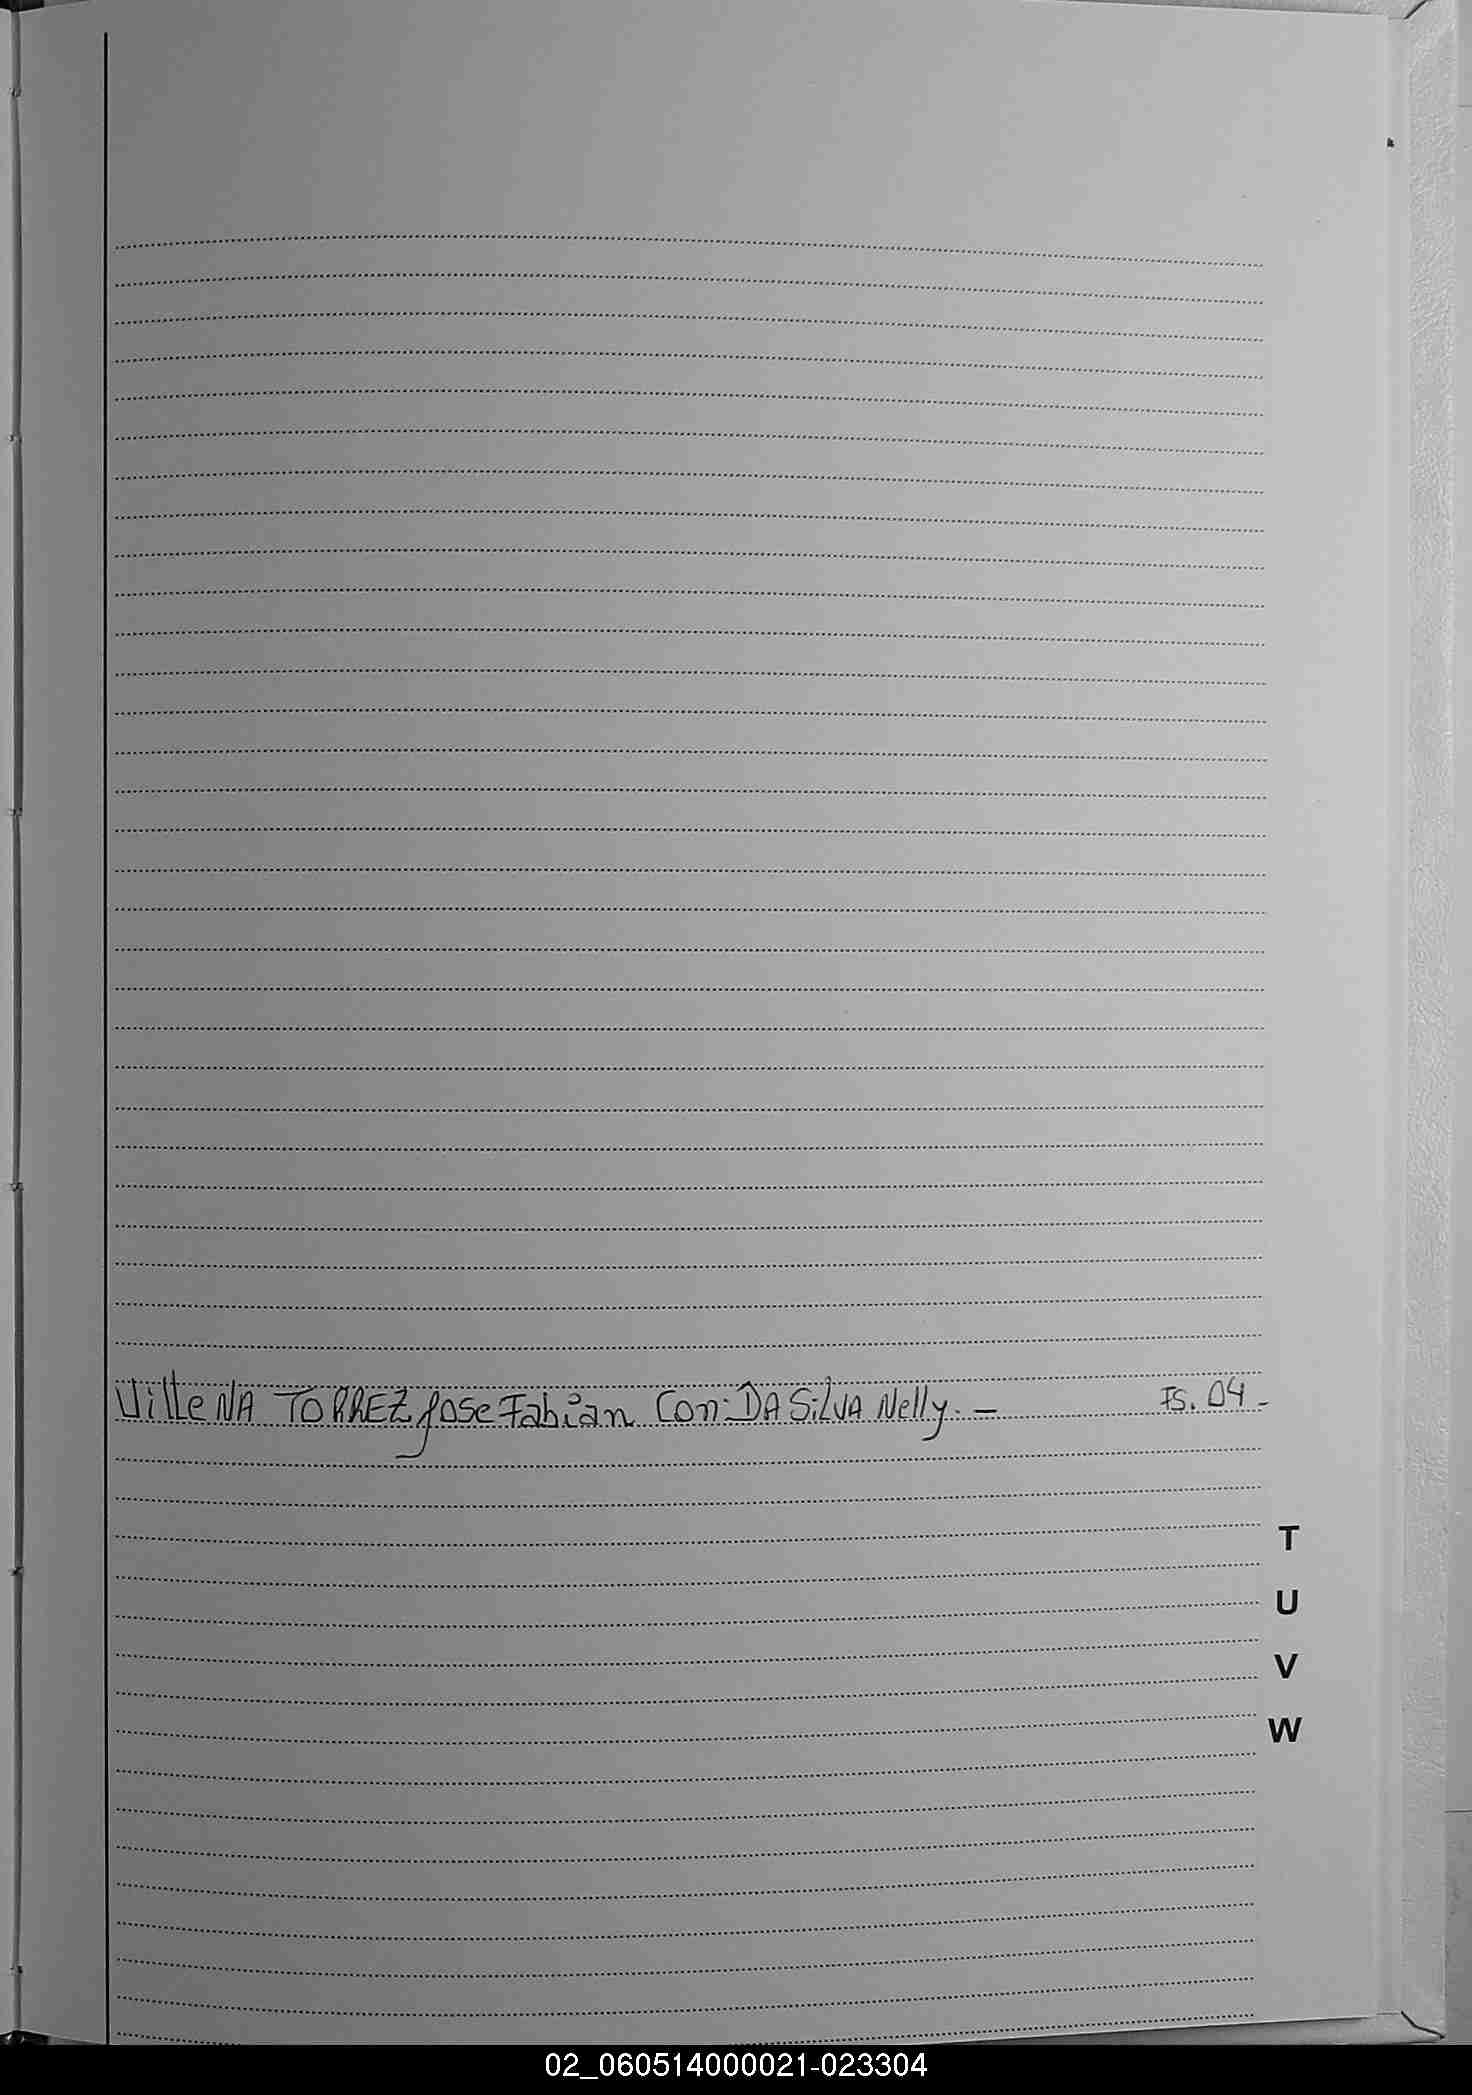 VilleNA TORREZ Jose Fabian Con: DA SilVA Nelly. — Fs. 04 -
T
U
V
W
02_060514000021-023304